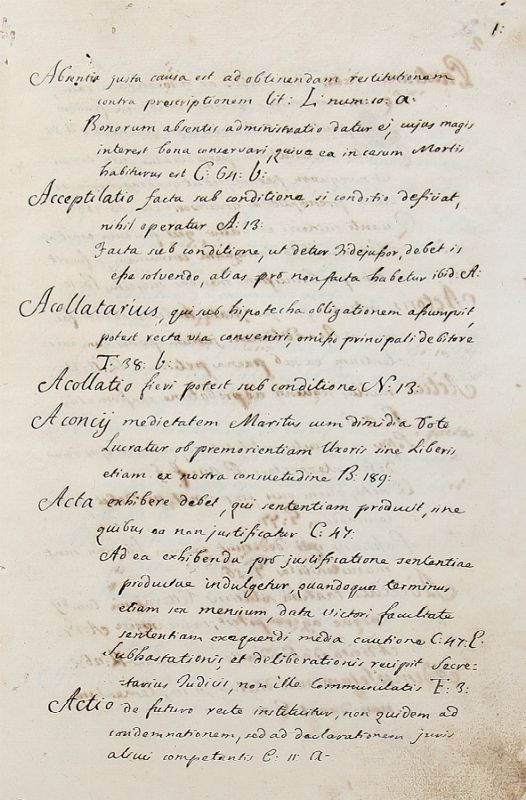 1:
Absentia justa causa est ad obtinendam restitutionem
contra prescriptionem lit: L: num: 10: a:
Bonorum absentis administratio datur ei, cujus magis
interest bona conservari, quive ea in casum Mortis
habiturus est C: 64: b:
Acceptilatio facta sub conditione si conditio deficiat,
nihil operatur A: 13:
Facta sub conditione, ut detur Fidejussor, debet is
esse solvendo, alias pro non facta habetur ibid: A:
Acollatarius, qui sub hipotecha obligationem assumpsit,
potest recta via conveniri, omisso principali debitore
T: 38: b:
Acollatio fieri potest sub conditione N: 13:
Aconcij medietatem Maritus cum dimidia Dote
Lucratur ob premorientiam Uxoris sine Liberis
etiam ex nostra consuetudine B: 189:
Acta exhibere debet, qui sententiam producit, sine
quibus ea non justificatur C: 47:
Ad ea exhibenda pro justificatione sententiae
productae indulgetur, quandoque terminus
etiam sex mensium, data victori facultate
sententiam exequendi media cautione C: 47: E.
Subhastationis et deliberationis recipit Secre-
-tarius Judicis, non ille Communitatis F: 3:
Actio de futuro recte instituitur, non quidem ad
condemnationem, sed ad declarationem juris
alicui competentis C: 11: a-